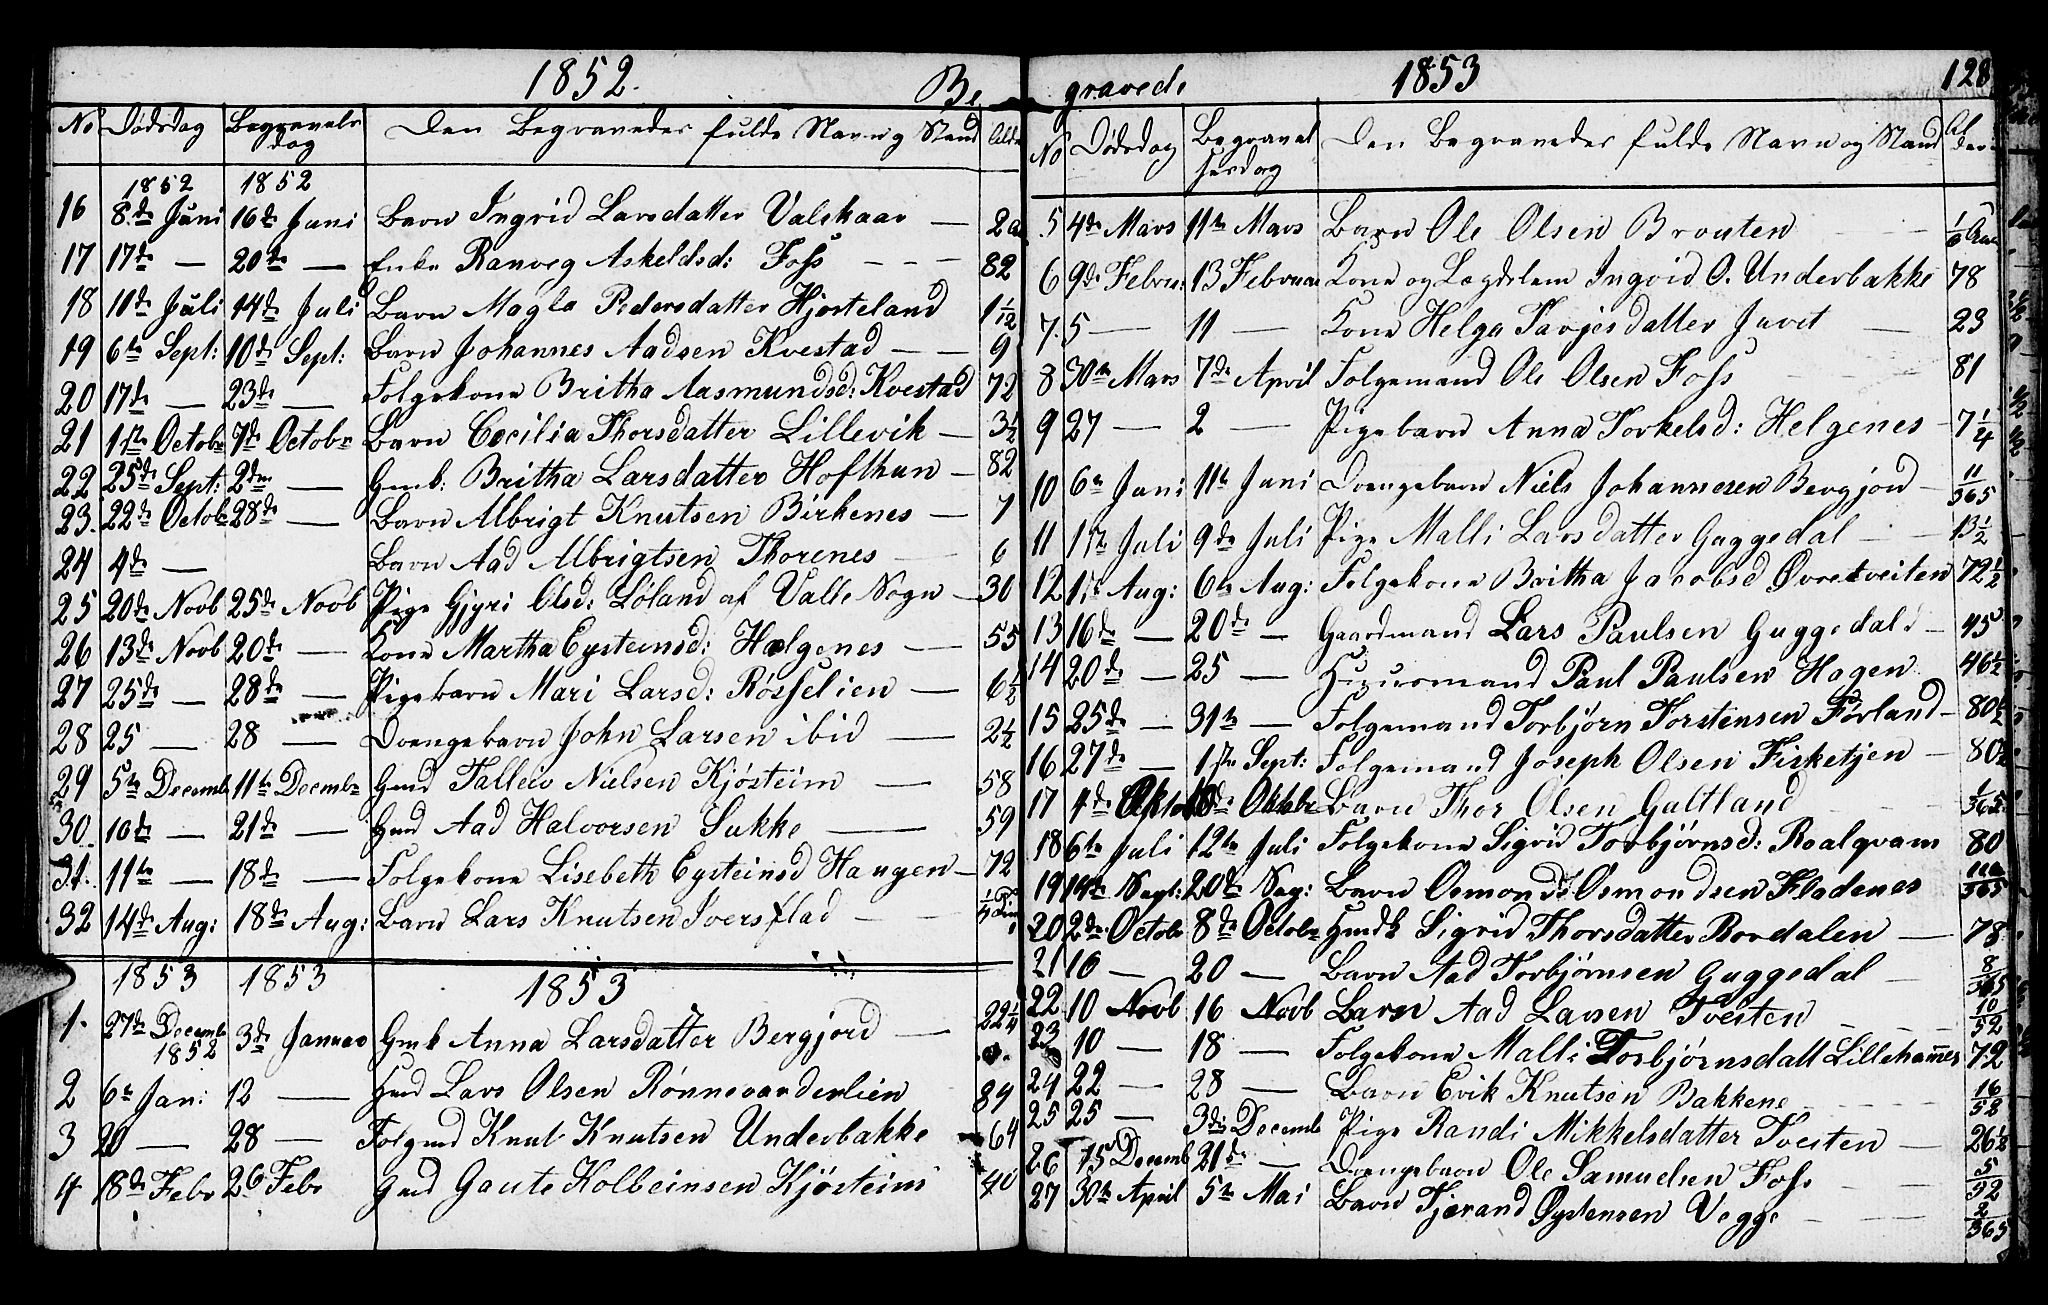 1852. Be
No Dødsdag Begravels dag Den Begravedes fulde Navn og Stand Alder
1852 1852
16 8de Juni 16de Juni Barn Ingrid Larsdatter Valskaar — 2a
17 17de — 20de — Enke Ranveg Askeldsd: Foss - - - 82
18 11de Juli 14de Juli Barn Magla Pedersdatter Hjorteland 1 1/12
19 6te Sept: 10de Sept: Barn Johannes Aadsen Kvestad — — 9
20 17de — 23de — Folgekone Britha Aasmundsd: Kvestad 72
21 1ste Octobr 7de Octobr Barn Cecilia Thorsdatter Lillevik — 3 1/2
22 25de Sept: 2den — Gmk: Britha Larsdatter Hofthun — 82
23. 22de Octobr 28de — Barn Albrigt Knutsen Birkenes — 7
24 4de — Barn Aad Albrigtsen Thorenes — 6
25 20de Novb 25de Novb Pige Gjyri Olsd: Løland af Valle Sogn — 30
26 13de Novb 20de — Kone Martha Eysteinsd: Helgenes — 55
27 25de — 28de — Pigebarn Mari Larsd: Røsselien — 6 1/2
28 25 — 28 — Drengebarn John Larsen ibid — 2 1/2
29 5te Decemb 11te Decembr Gmd Tallev Nielsen Kjösteim — 58
30. 10de — 21de — Hmd Aad Halvorsen Sukke — 59
31. 11te — 18de — Folgekone Lisebeth Eysteinsd Haugen — 72
32 14de Aug: 18de Aug: Barn Lars Knutsen Iversflad — — 1/4 Dim
1853 1853 1853
1. 27de Decemb 1852 3de Januar Gmk Anna Larsdatter Bergjord — 22 1/4
2 6te Jan: 12 — Hmd Lars Olsen Rønnevanderlien 84
3 20 — 28 — Folgmd Knut Knutsen Underbakke 64
4 18de Febr 26 Febr Gmd Gaute Kolbeinsen Kjösteim 40
gravede 1853 128
No Dødsdag Begravel sesdag Den Begravedes fulde Navn og Stand Al der
5 4de Mars 11te Mars Barn Ole Olsen Brouten
6 9de Febru: 13 Februar Kone og Lægdslem Ingrid O. Underbakke 78
7. 5 — 11 — Kone Helga Tarjesdatter Juvet — 23
8 30te Mars 7de April Folgemand Ole Olsen Foss 81
9 27 — 2 — Pigebarn Anna Torkelsd: Helgenes - 7 1/4
10 6te Juni 11te Juni Drengebarn Niels Johannesen Bergjord - 11/365
11 1ste Juli 9de Juli Pige Malli Larsdatter Guggedal — 13 1/2
12 1ste Aug: 6te Aug: Folgekone Britha Jacobsd Øvretveiten 72 1/2
13 16de — 20de — Gaardmand Lars Paulsen Guggedal — 45
14 20de — 25 — Huusmand Paul Paulsen Hagen 46 1/2
15 25de — 31te — Folgemand Torbjørn Torstensen Førland — 80 1/2
16 27de — 1ste Sept: Folgemand Joseph Olsen Fisketjen — 80 1/2
17 4de Oktobr Oktobr Barn Thor Olsen Galtland 1/365
18 6te Juli 12te Juli Folgekone Sigrid Torbjørnsd: Roalqvam 80
19 14de Sept: 20de Sep: Barn Osmond Osmondsen Fladenes
20 2den Octobr 8de Octobr Hmdk Sigrid Thorsdatter Bordalen — 78
21 16 — 20 — Barn Aad Torbjørnsen Guggedal - 8/365
22 10 Novb 16 Novb Barn Aad Larsen Tvesten 10/52
23 10 — 18 — Folgekone Malli Torbjørnsdatt Lillehamer 72
24 22 — 28 — Barn Erik Knutsen Bakkene 16/52
25 25 — 3die Decemb Pige Randi Mikkelsdatter Tvesten — 26 1/2
26 15 Decemb 21de — Drengebarn Ole Samuelsen Foss 5/52
27 30te April 5te Mai Barn Tjerand Øystensen Vegge 2/365